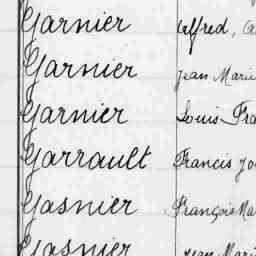 Garnier Alfred,
Garnier Jean Marie
Garnier Louis
Garrault Francis
Gasnier François
Gasnier Jean